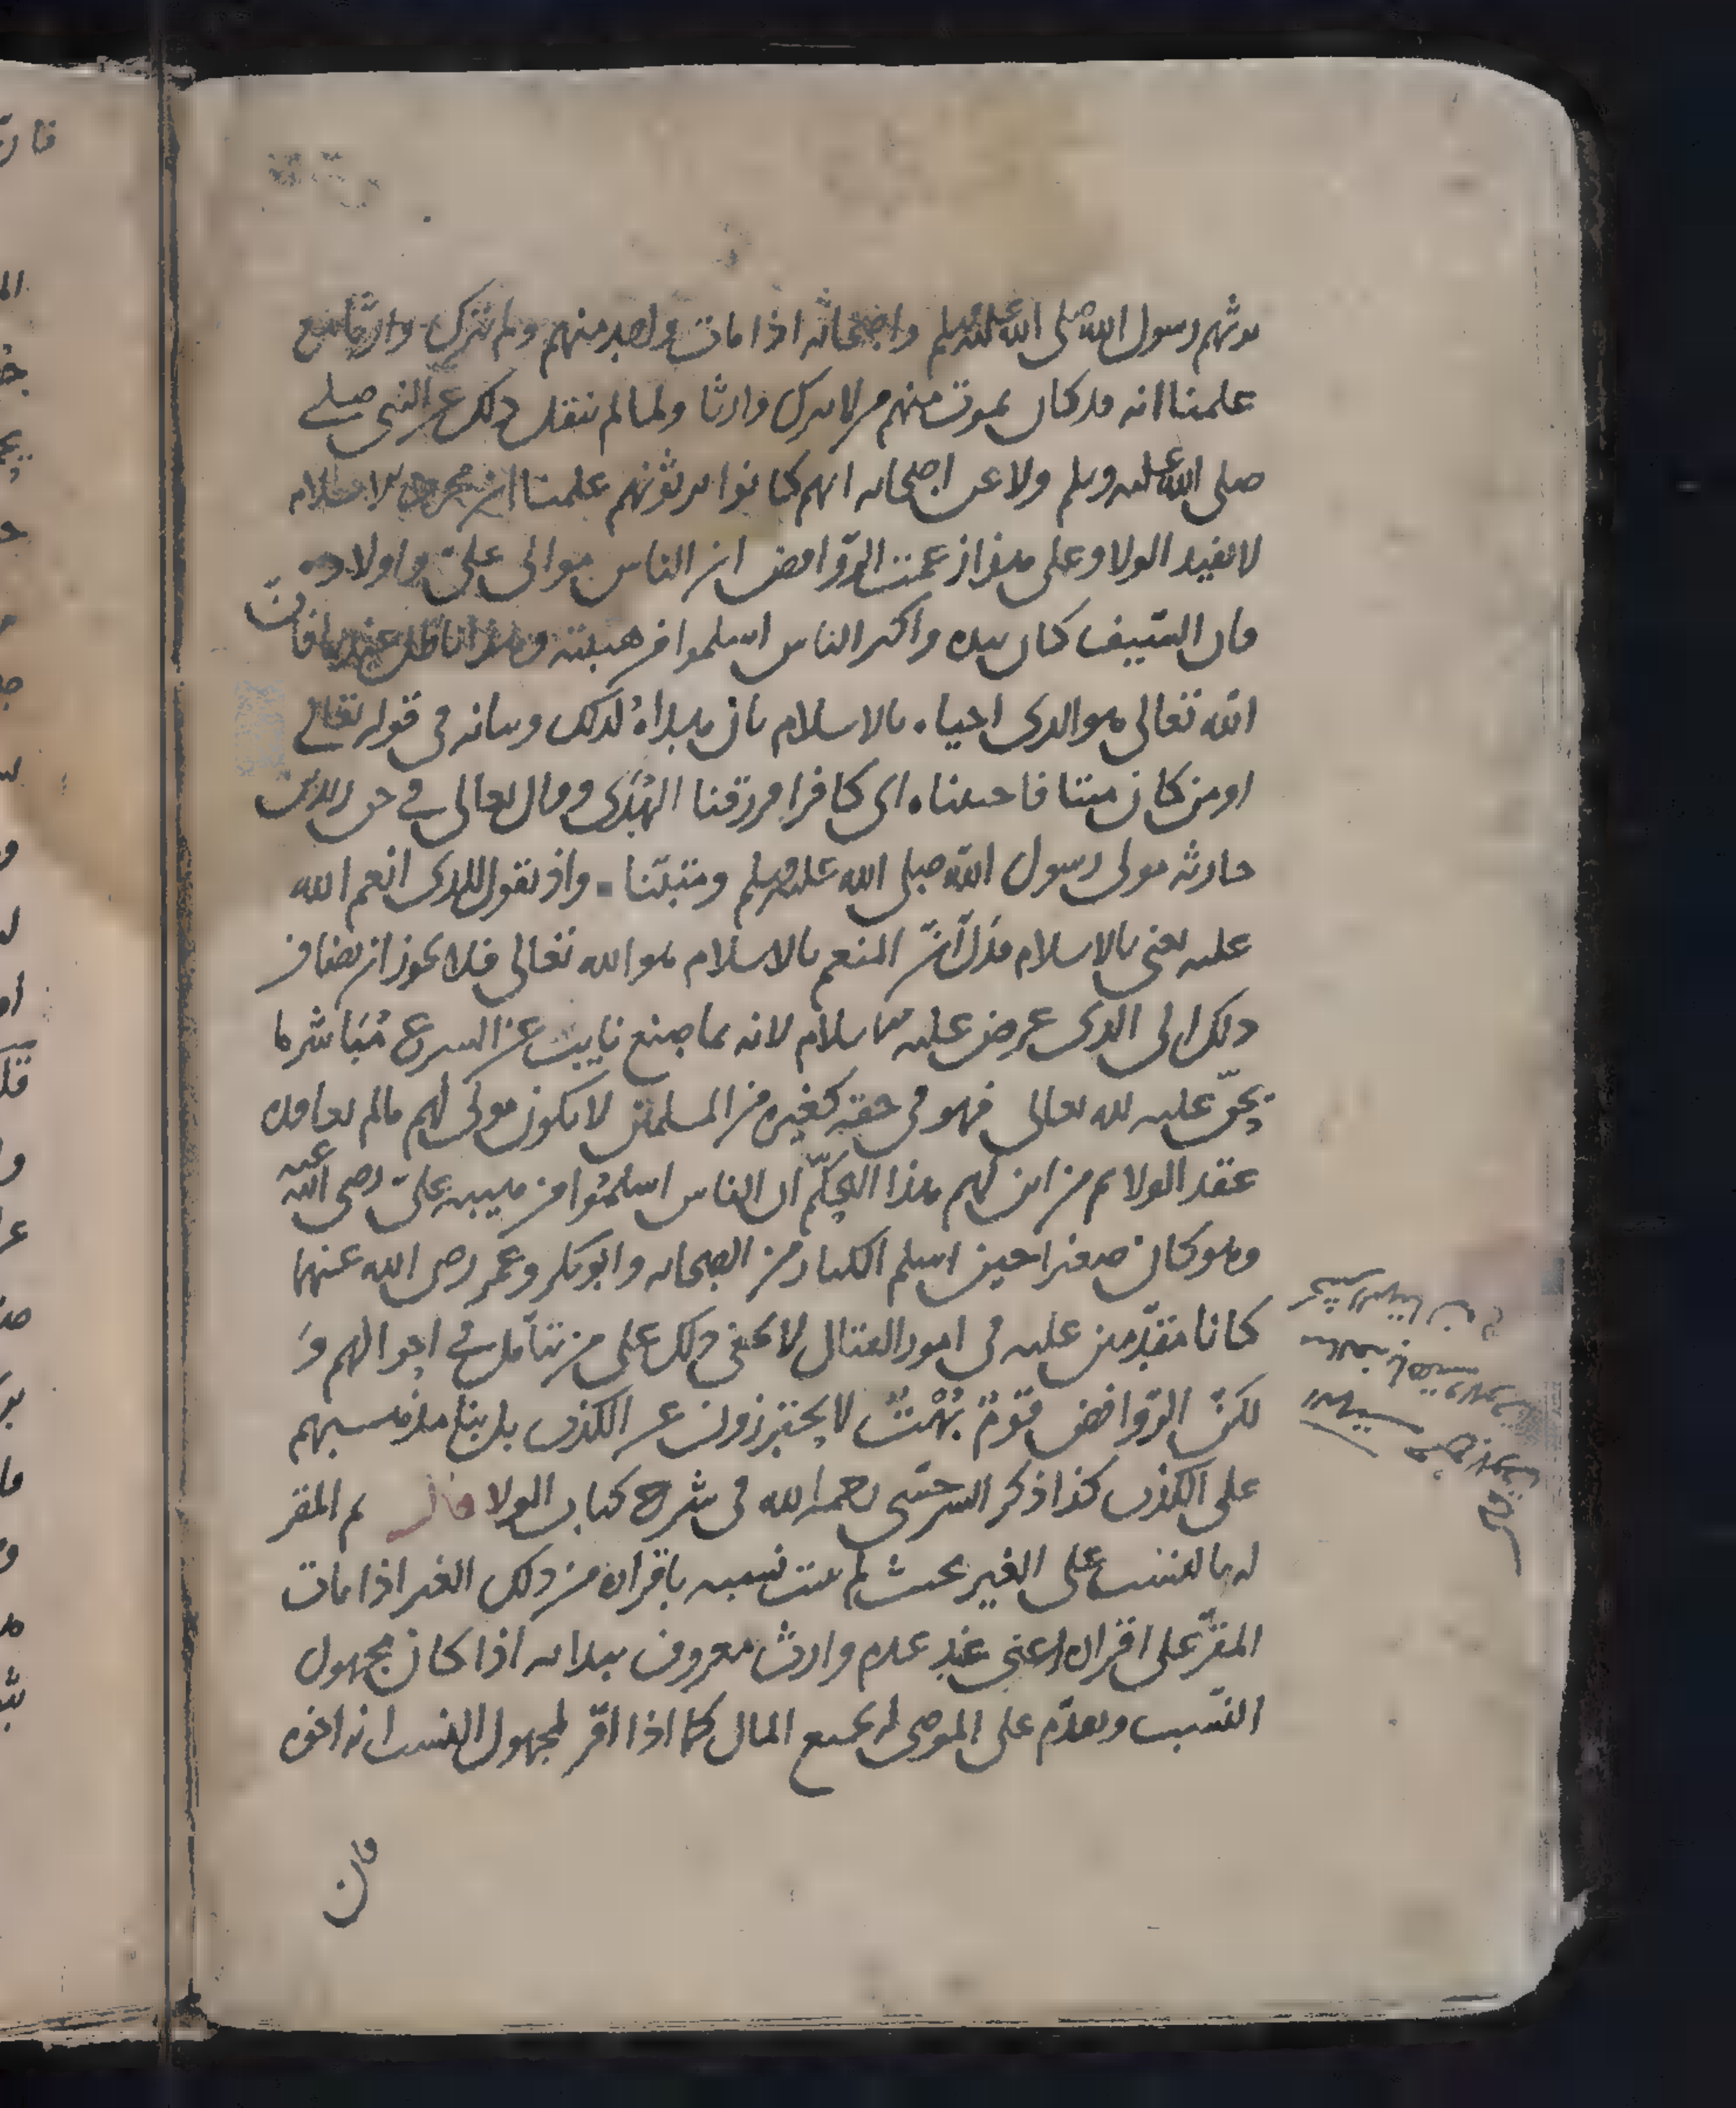 يرثهم رسول الله صلى الله عليه وسلم واصحابه اذا مات واحد منهم ولم يترك وارثا مع
علمنا انه قد كان يموت منهم من لا يترك وارثا ولما لم ينقل ذلك عن النبي صلى
صلى الله عليه وسلم ولا عن اصحابه انهم كانوا يرثونهم علمنا ان مجرد الاسلام
لا يفيد الولا وعلى هذا زعمت الروافض ان الناس موالي علي واولاده
فان السيف كان بيده واكثر الناس اسلموا من هيبته وهذا باطل عندنا فان
الله تعالى هو الذي احياه بالاسلام بان هداه لذلك وبيانه في قوله تعالى
اومن كان ميتا فاحييناه اي كافرا فرزقنا الهدى وقال تعالى في حق زيد بن
حارثه مولى رسول الله صلى الله عليه وسلم ومتبنا واذ تقول للذي انعم الله
عليه يعني بالاسلام فدل ان المنعم بالاسلام هو الله تعالى فلا يجوز ان يضاف
ذلك الى الذي عرض عليه الاسلام لانه بما صنع نايب عن الشرع مباشر لما
يحق عليه لله تعالى فهو في حقه كغيره من المسلمين لا يكون مولى لهم مالم يعاقده
عقد الولا ثم من اين لهم هذا التحكم ان الناس اسلموا من هيبه علي رضي الله عنه
وهو كان صغيرا حين اسلم الكبار من الصحابه وابو بكر وعمر رضي الله عنهما
كانا مقدمين عليه في امور القتال لا يخفى ذلك على من تامل في احوالهم و
لكن الروافض قوم بهت لا يحترزون عن الكذب بل بنا مذهبهم
على الكذب كذا ذكر السرخسي رحمه الله في شرح كتاب الولا قال ثم المقر
له بالنسب على الغير بحيث لم يثبت نسبه باقراره من ذلك الغير اذا مات
المقر على اقراره اعني عند عدم وارث معروف يبدا به اذا كان مجهول
النسب ويقدم على الموصى له بجميع المال كما اذا اقر لمجهول النسب انه اخوه
فان